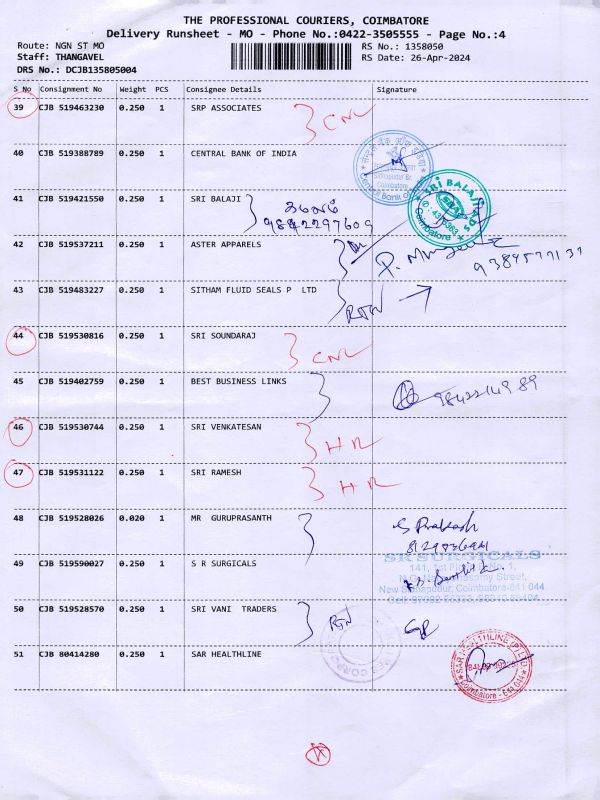 THE PROFESSIONAL COURIERS, COIMBATORE
Delivery Runsheet - MO - Phone No.:0422-3505555 - Page No.:4
Route: NGN ST MO
RS No.: 1358050
Staff: THANGAVEL
RS Date: 26-Apr-2024
DRS No.: DCJB135805004
S No Consignment No Weight PCS Consignee Details Signature
39 CJB 519463230 0.250 1 SRP ASSOCIATES CNL
40 CJB 519388789 0.250 1 CENTRAL BANK OF INDIA
Coimbatore
Central Bank of
41 CJB 519421550 0.250 1 SRI BALAJI
கமலம்
9842297609
SRI BALAJI
Coimbatore
42 CJB 519537211 0.250 1 ASTER APPARELS
43 CJB 519483227 0.250 1 SITHAM FLUID SEALS P LTD
RTN
44 CJB 519530816 0.250 1 SRI SOUNDARAJ CNL
45 CJB 519402759 0.250 1 BEST BUSINESS LINKS
46 CJB 519530744 0.250 1 SRI VENKATESAN HR
47 CJB 519531122 0.250 1 SRI RAMESH HR
48 CJB 519528026 0.020 1 MR GURUPRASANTH
S Prakash
49 CJB 519590027 0.250 1 S R SURGICALS
SR SURGICALS
Street,
Coimbatore-641 044
50 CJB 519528570 0.250 1 SRI VANI TRADERS RTN
51 CJB 80414280 0.250 1 SAR HEALTHLINE
SAR HEALTHLINE (P) LTD
Coimbatore - 641 044